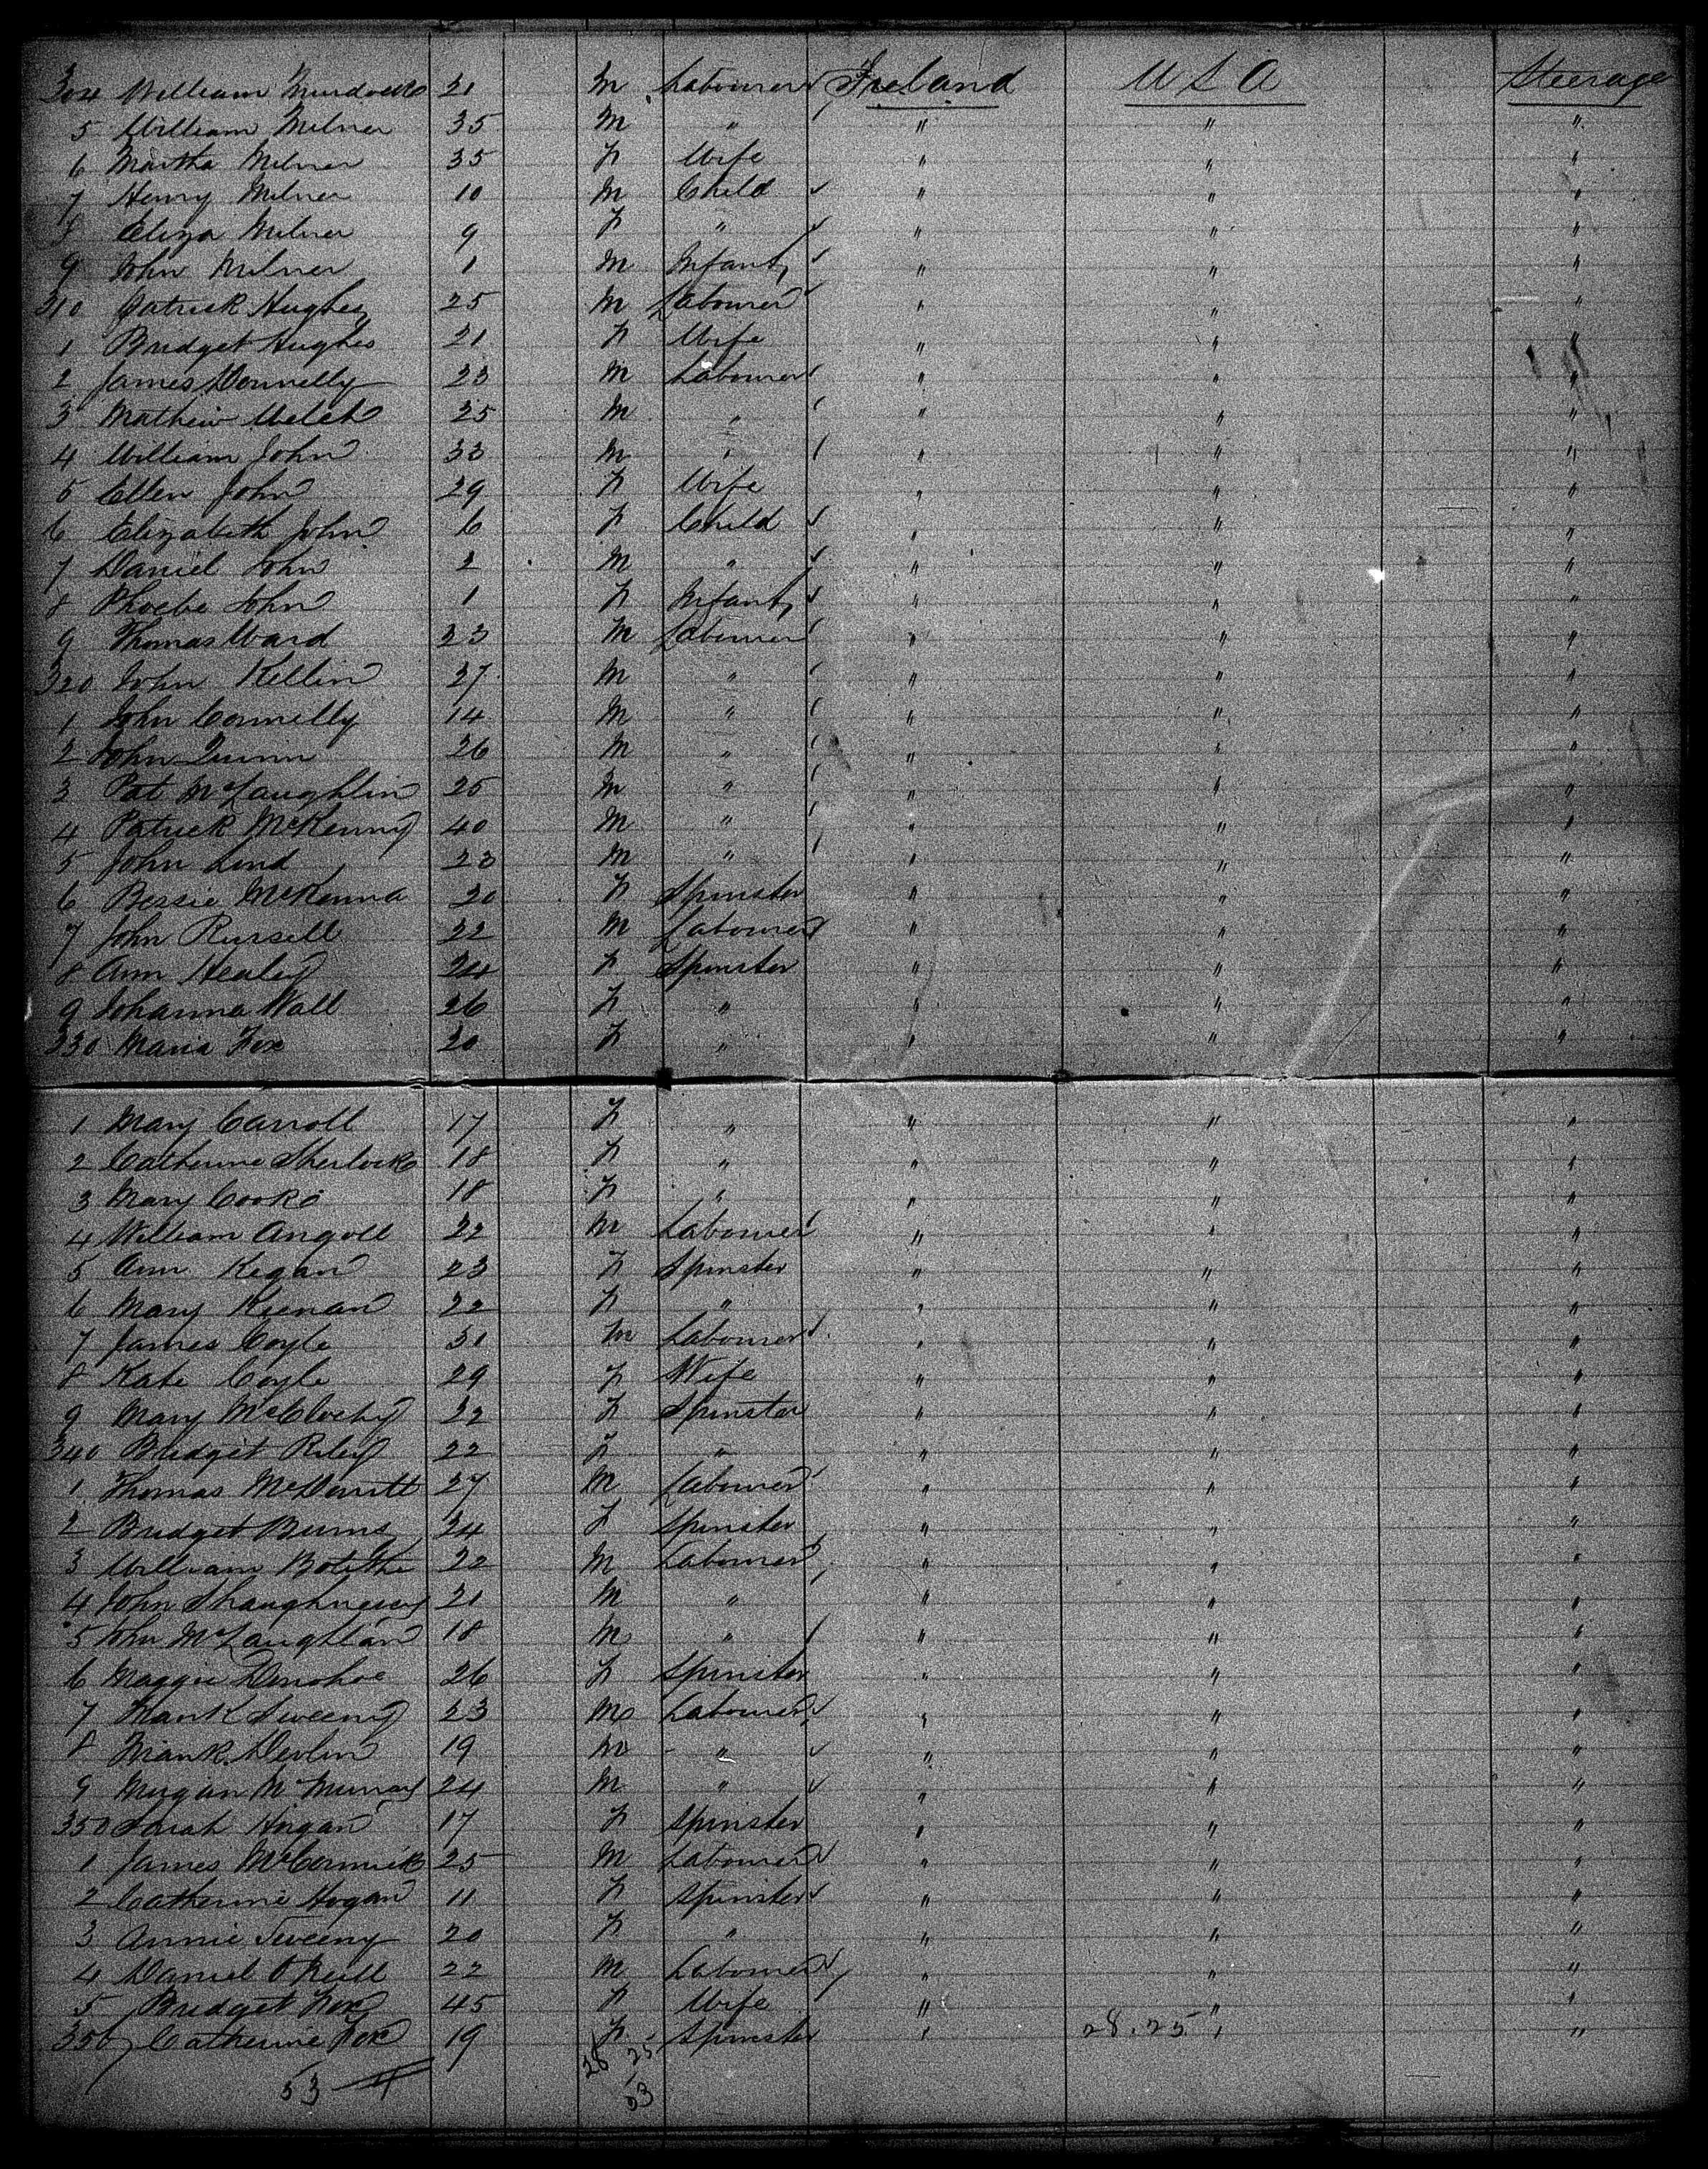 304 William Murdock 21 M Labourer Ireland U S A Steerage
5 William Milner 35 M " " " "
6 Martha Milner 35 F Wife " " "
7 Henry Milner 10 M Child " " "
8 Eliza Milner 9 F " " " "
9 John Milner 1 M Infant " " "
310 Patrick Hughes 25 M Labourer " " "
1 Bridget Hughes 21 F Wife " " "
2 James Donnelly 23 M Labourer " " "
3 Mathew Welch 25 M " " " "
4 William John 33 M " " " "
5 Ellen John 29 F Wife " " "
6 Elizabeth John 6 F Child " " "
7 Daniel John 2 M " " " "
8 Phoebe John 1 F Infant " " "
9 Thomas Ward 23 M Labourer " " "
320 John Killin 27 M " " " "
1 John Connelly 14 M " " " "
2 John Quinn 26 M " " " "
3 Pat McLaughlin 25 M " " " "
4 Patrick McKenny 40 M " " " "
5 John Lind 23 M " " " "
6 Bessie McKenna 20 F Spinster " " "
7 John Russell 22 M Labourer " " "
8 Ann Healey 24 F Spinster " " "
9 Johanna Wall 26 F " " " "
330 Maria Fox 20 F " " " "
1 Mary Carroll 17 F " " " "
2 Catherine Sherlock 18 F " " " "
3 Mary Cooke 18 F " " " "
4 William Angoll 22 M Labourer " " "
5 Ann Kegan 23 F Spinster " " "
6 Mary Keenan 22 F " " " "
7 James Coyle 31 M Labourer " " "
8 Kate Coyle 29 F Wife " " "
9 Mary 22 F Spinster " " "
340 Bridget Riley 22 F " " " "
1 Thomas McDevitt 27 M Labourer " " "
2 Bridget Burns 24 F Spinster " " "
3 William 22 M Labourer " " "
4 John Shaughnessy 21 M " " " "
5 John McLaughlan 18 M " " " "
6 Maggie Donohoe 26 F Spinster " " "
7 Frank Sweeny 23 M Labourer " " "
8 Frank Devlin 19 M " " " "
9 24 M " " " "
350 Sarah Horgan 17 F Spinster " " "
1 James McCormick 25 M Labourer " " "
2 Catherine Hogan 11 F Spinster " " "
3 Annie Sweeny 20 F " " " "
4 Daniel O'Neill 22 M Labourer " " "
5 Bridget Fox 45 F Wife " " "
356 Catherine Fox 19 F Spinster " 28.25 " "
28 25
53 53